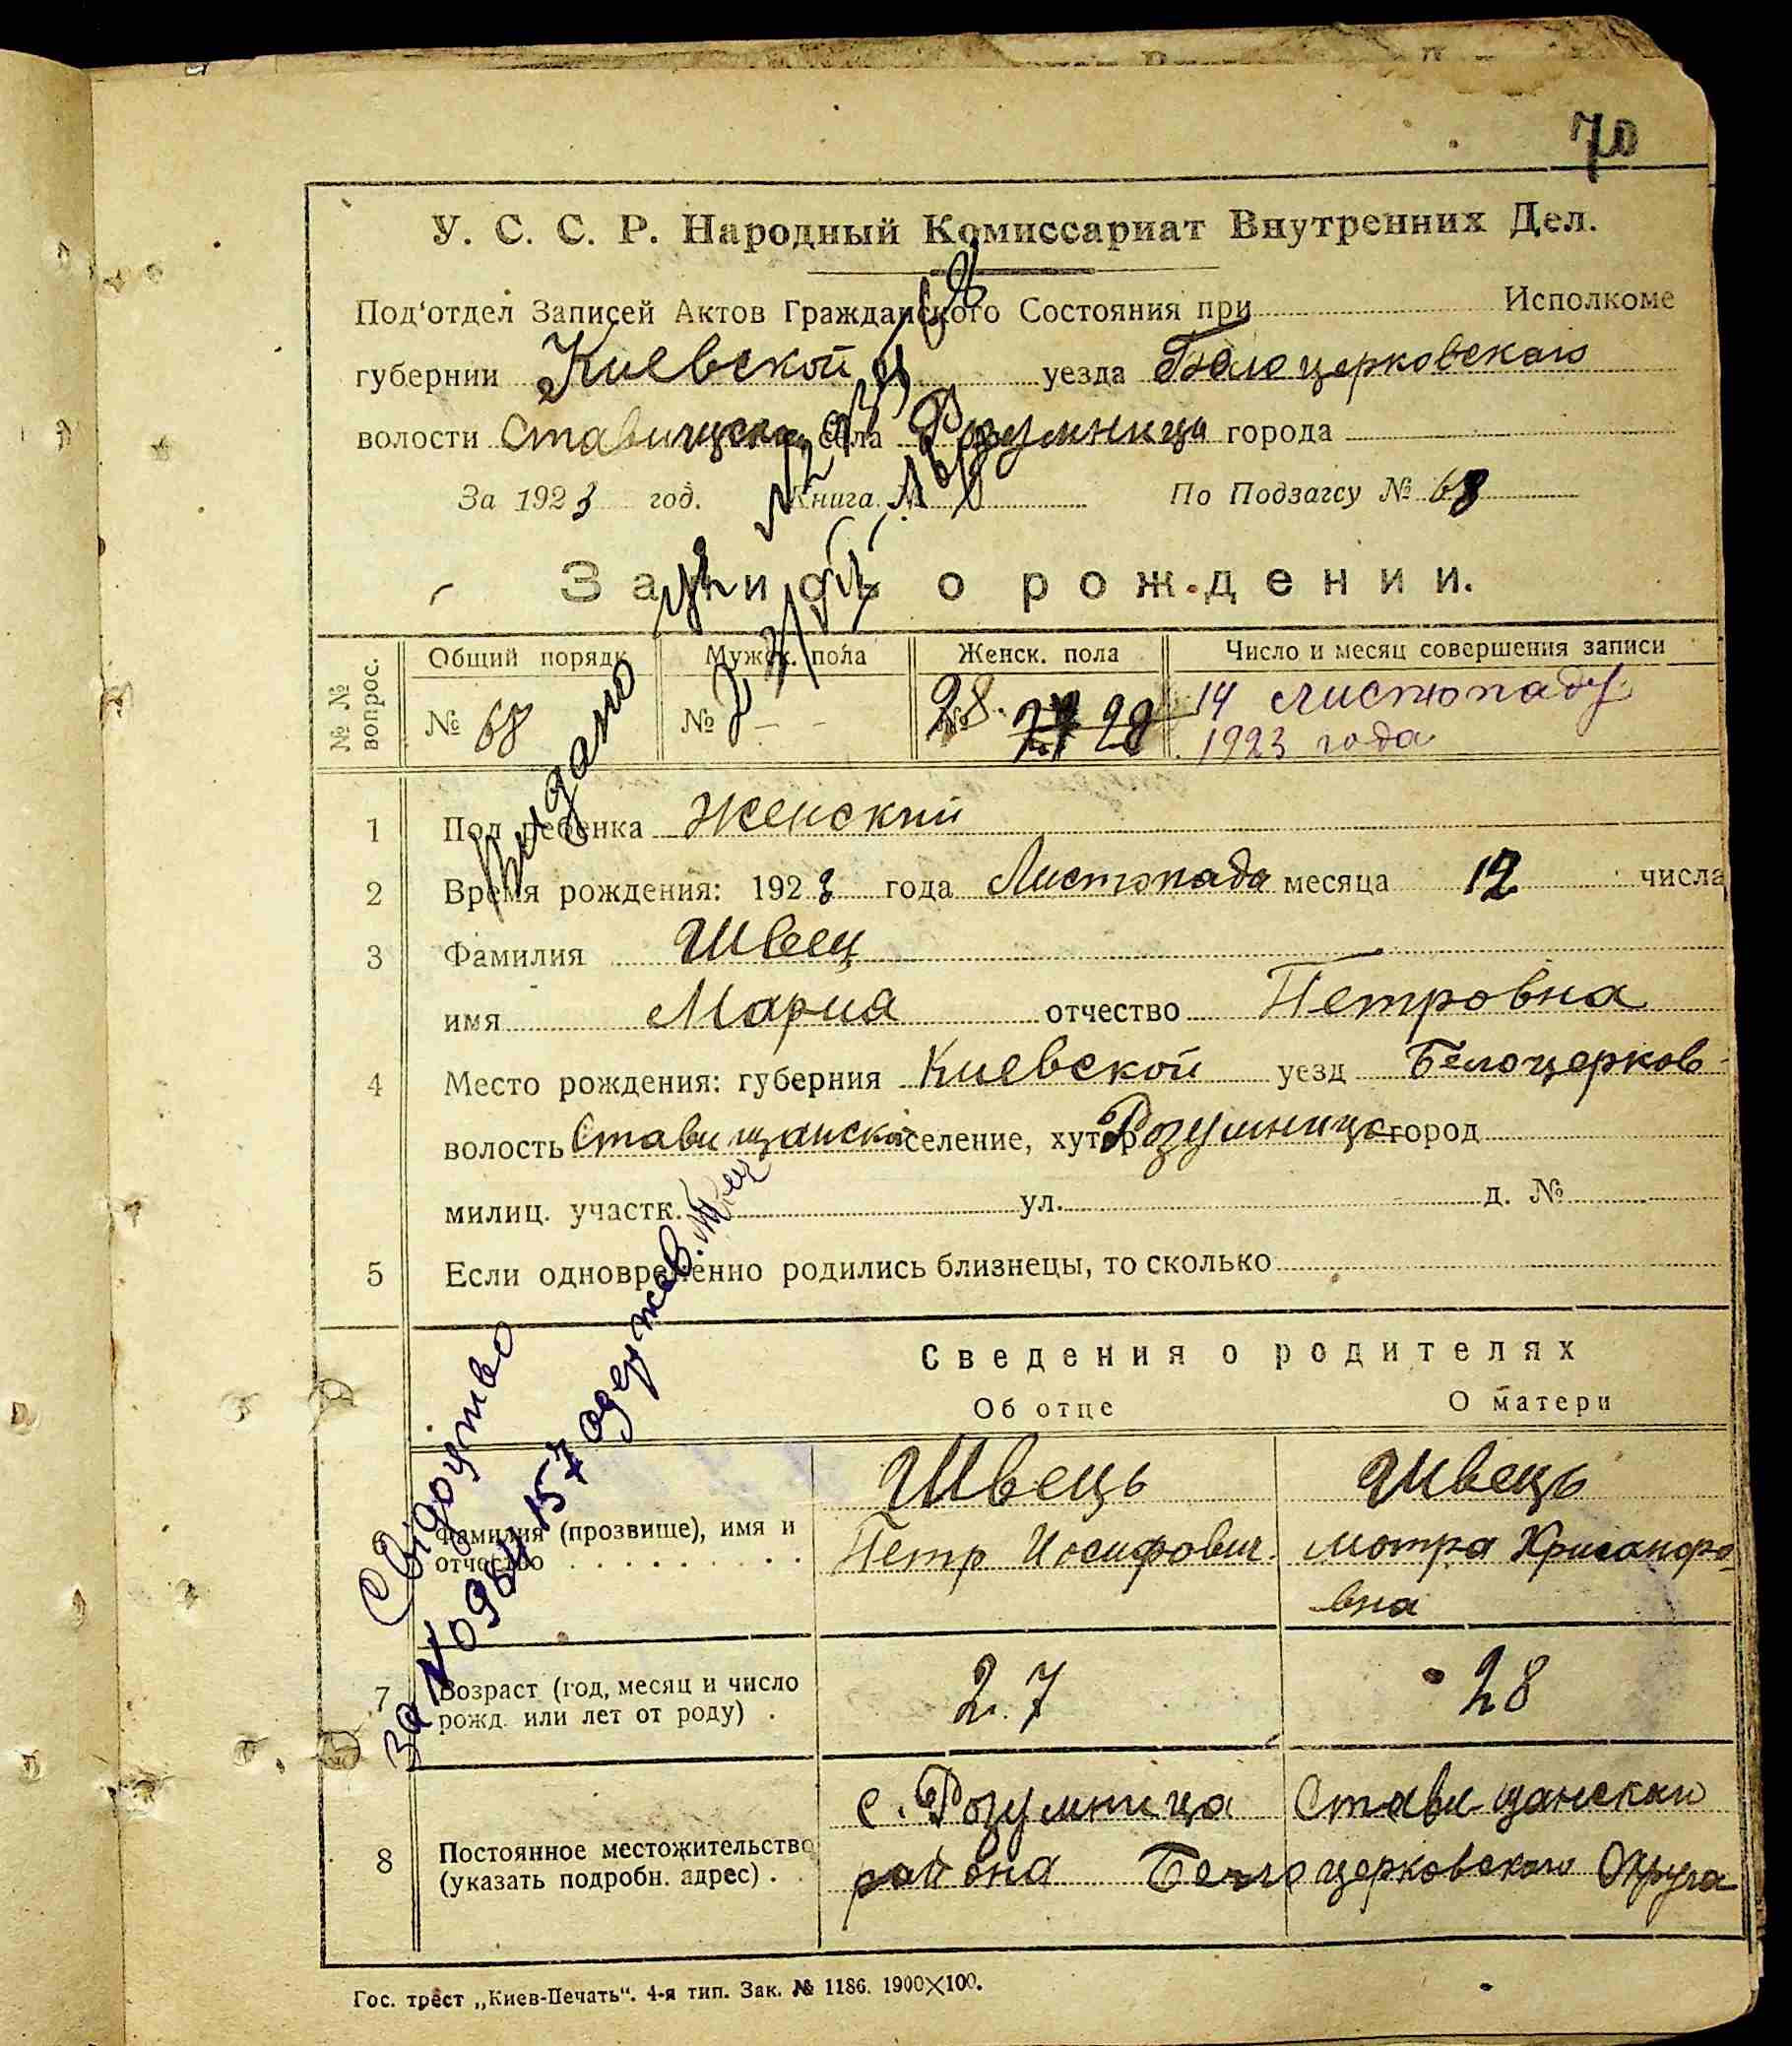 70
У. С. С. Р. Народный Комиссариат Внутренних Дел.
Под'отдел Записей Актов Гражданского Состояния при Исполкоме
губернии Киевской уезда Белоцерковского
волости села Розумница города
За 1923 год. Книга № По Подзагсу № 68
Запись о рождении.
№№ вопрос. Общий порядк. Мужск. пола Женск. пола Число и месяц совершения записи
№ 68 № - - № 28. 28 14 листопаду
1923 года
Видано
1 Пол ребенка Женский
2 Время рождения: 1923 года Листопада месяца 12 числа
3 Фамилия Швец
имя Мария отчество Петровна
4 Место рождения: губерния Киевской уезд Белоцерков-
волость Ставищанской селение, хутор Розумница город
милиц. участк. ул. д. №
5 Если одновременно родились близнецы, то сколько
Сведения о родителях
Об отце О матери
Швець Швець
6 Фамилия (прозвище), имя и отчество Петр Иосифович Мотра Хрисанфо-
вна
7 Возраст (год, месяц и число рожд. или лет от роду) . 27 28
с. Розумница Ставищанский
8 Постоянное местожительство (указать подробн. адрес) . . района Белоцерковского Округа
Свідоцтво
за № 157 одержав.
Гос. трест „Киев-Печать“. 4-я тип. Зак. № 1186. 1900×100.